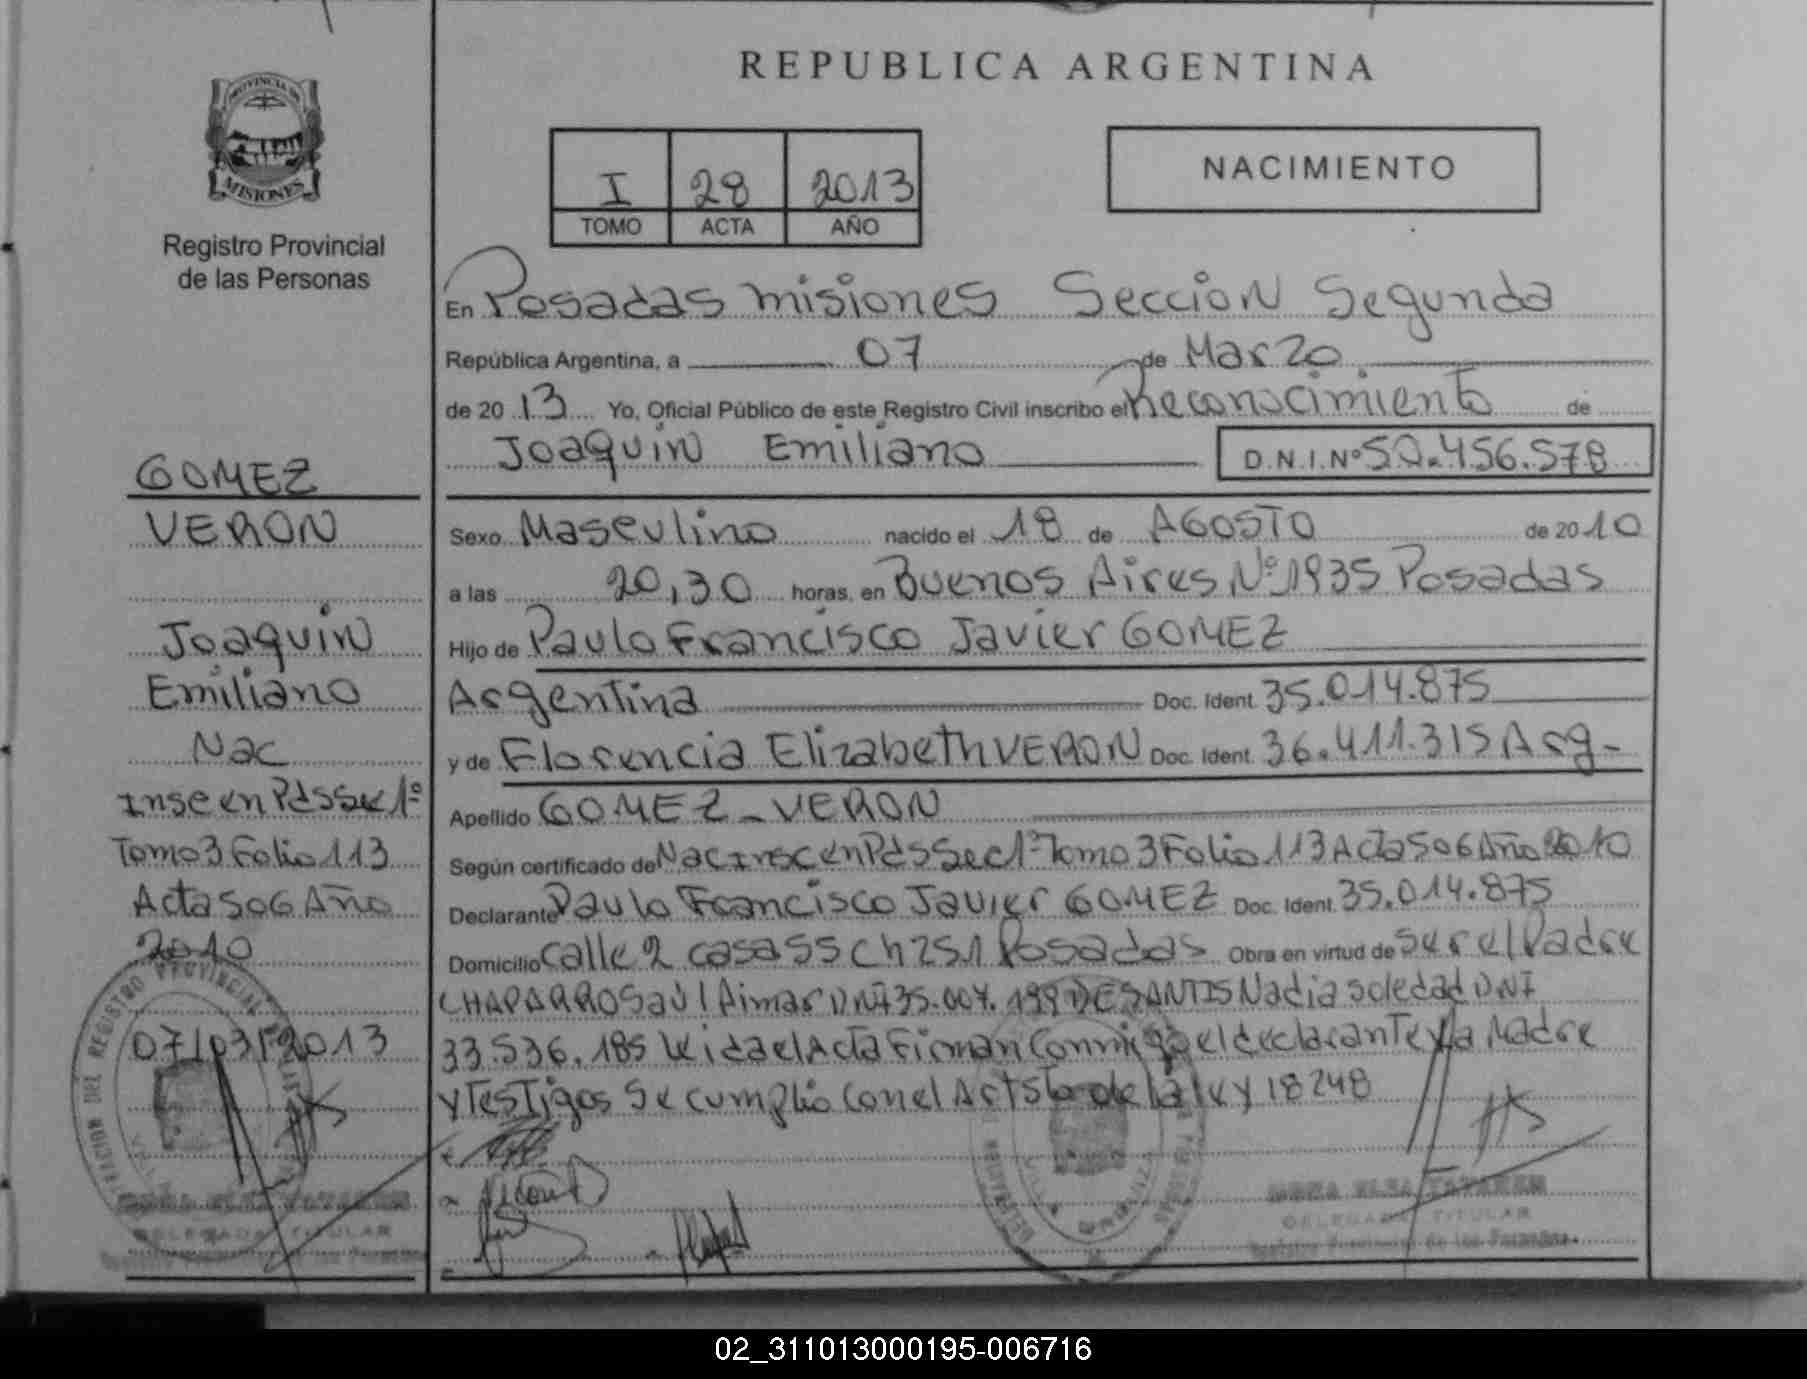 REPUBLICA ARGENTINA
PROVINCIA DE
MISIONES
Registro Provincial
de las Personas
I 28 2013
TOMO ACTA AÑO
NACIMIENTO
En Posadas misiones Seccion Segunda
República Argentina, a 07 de Marzo
de 20 13 Yo, Oficial Público de este Registro Civil inscribo el Reconocimiento de
Joaquin Emiliano D.N.I.Nº 50.456.578
Sexo Masculino nacido el 18 de AGOSTO de 2010
a las 20,30 horas, en Buenos Aires Nº 1935 Posadas
Hijo de Paulo Francisco Javier GOMEZ
Argentina Doc. Ident. 35.014.875
y de Florencia Elizabeth VERON Doc. Ident. 36.411.315 Arg-
Apellido GOMEZ - VERON
Según certificado de Nac Insc en Pdas Sec 1º Tomo 3 Folio 113 Acta 506 Año 2010
Declarante Paulo Francisco Javier GOMEZ Doc. Ident. 35.014.875
Domicilio Calle 2 casa 55 Ch 251 Posadas Obra en virtud de Ser el Padre
CHAPARRO Saul Aimar DNI 35.007.199 DE SANTIS Nadia Soledad DNI
33.536.185 Leida el Acta Firman Conmigo el declarante y la Madre
y Testigos Se cumplio con el Art 5to de la ley 18248
GOMEZ
VERON
Joaquin
Emiliano
Nac
Insc en Pds Sec 1º
Tomo 3 Folio 113
Acta 506 Año
2010
07/03/2013
DELEGADA TITULAR
DELEGADA TITULAR
Registro Provincial de las Personas
02_311013000195-006716